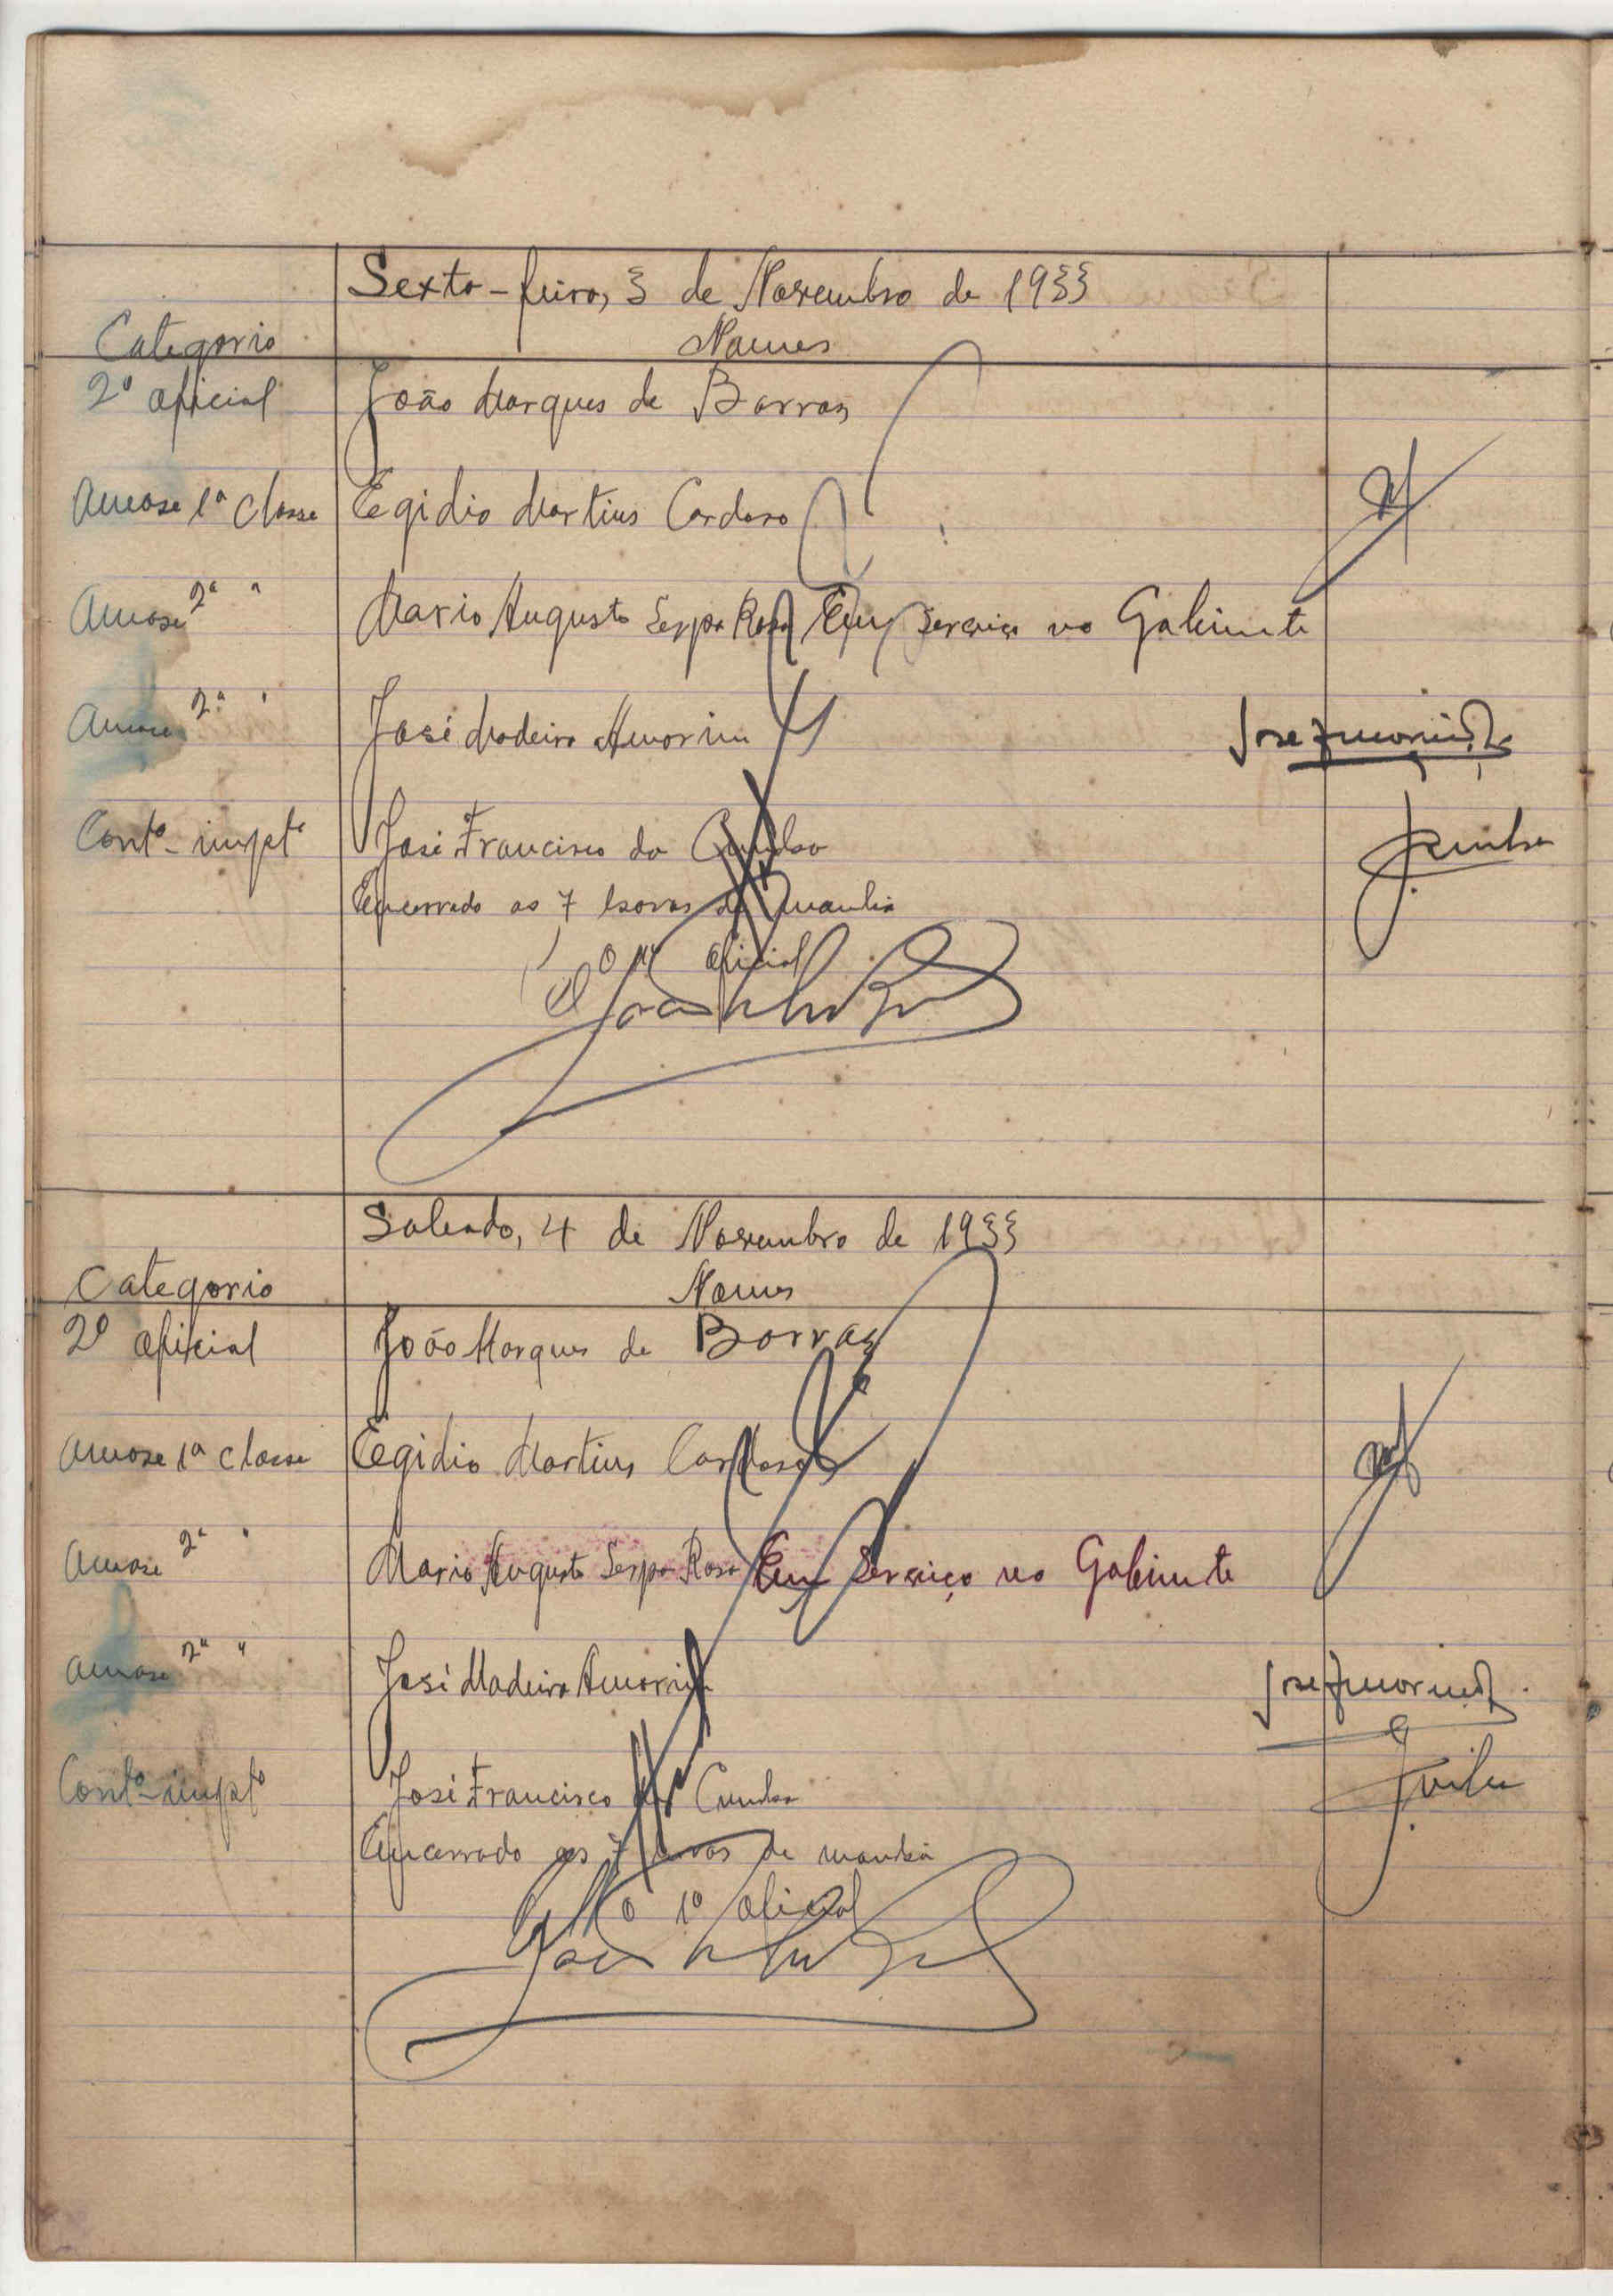 Sexta-feira, 3 de Novembro de 1933
Categoria Nomes
2º Oficial João Marques de Barros
Amose 1ª Classe Egidio Martins Cardoso
Amose 2ª " Mario Augusto Serpa Rosa Em Serviço no Gabinete
Amose 2ª " José Madeira Amorim José Amorim
Contº impt José Francisco da Cunha JCunha
Encerrado as 7 horas da manhã
O Oficial
Sabado, 4 de Novembro de 1933
Categoria Nomes
2º Oficial João Marques de Barros
Amose 1ª Classe Egidio Martins Cardoso
Amose 2ª " Mario Augusto Serpa Rosa Em Serviço no Gabinete
Amose 2ª " José Madeira Amorim José Amorim
Contº impto José Francisco da Cunha
Encerrado as 7 horas da manhã
O 1º Oficial